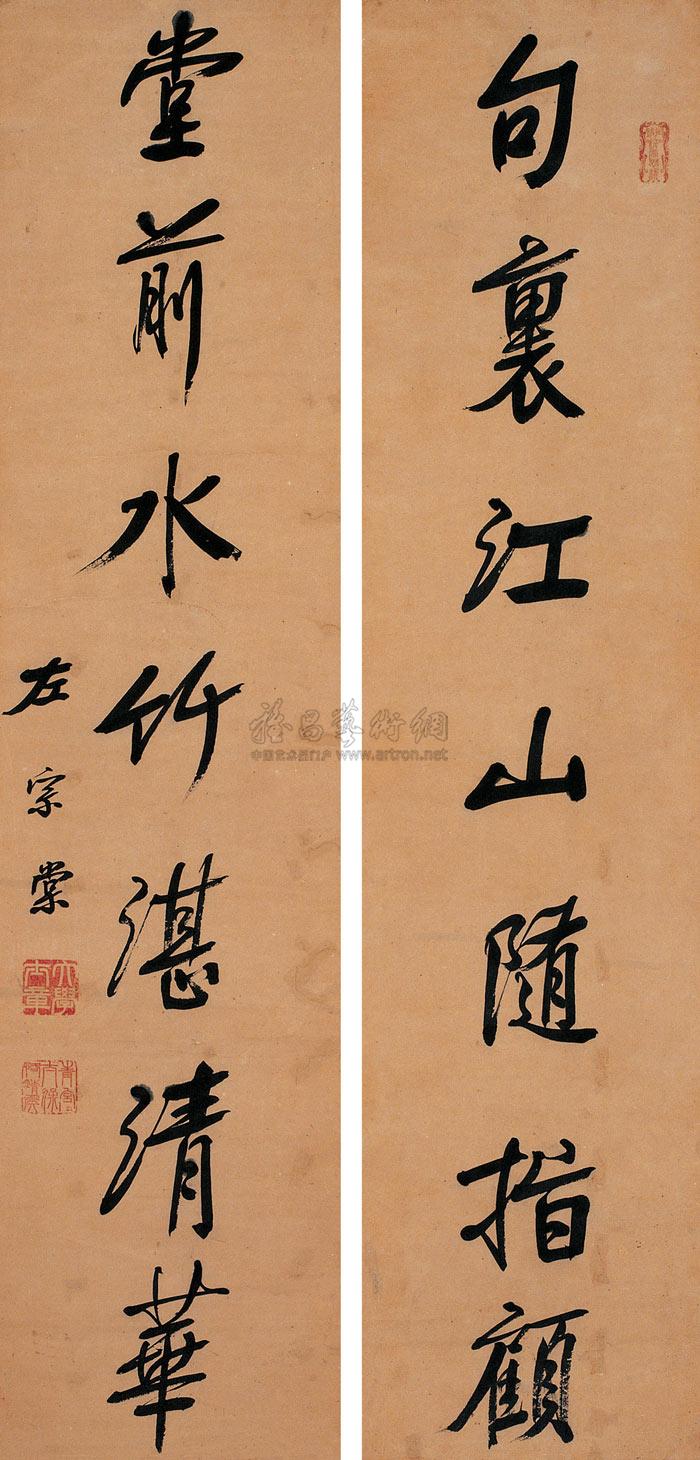 句裏江山隨指顧
堂前水竹湛清華
左宗棠
雅昌藝術網
中国艺术品门户 www.artron.net